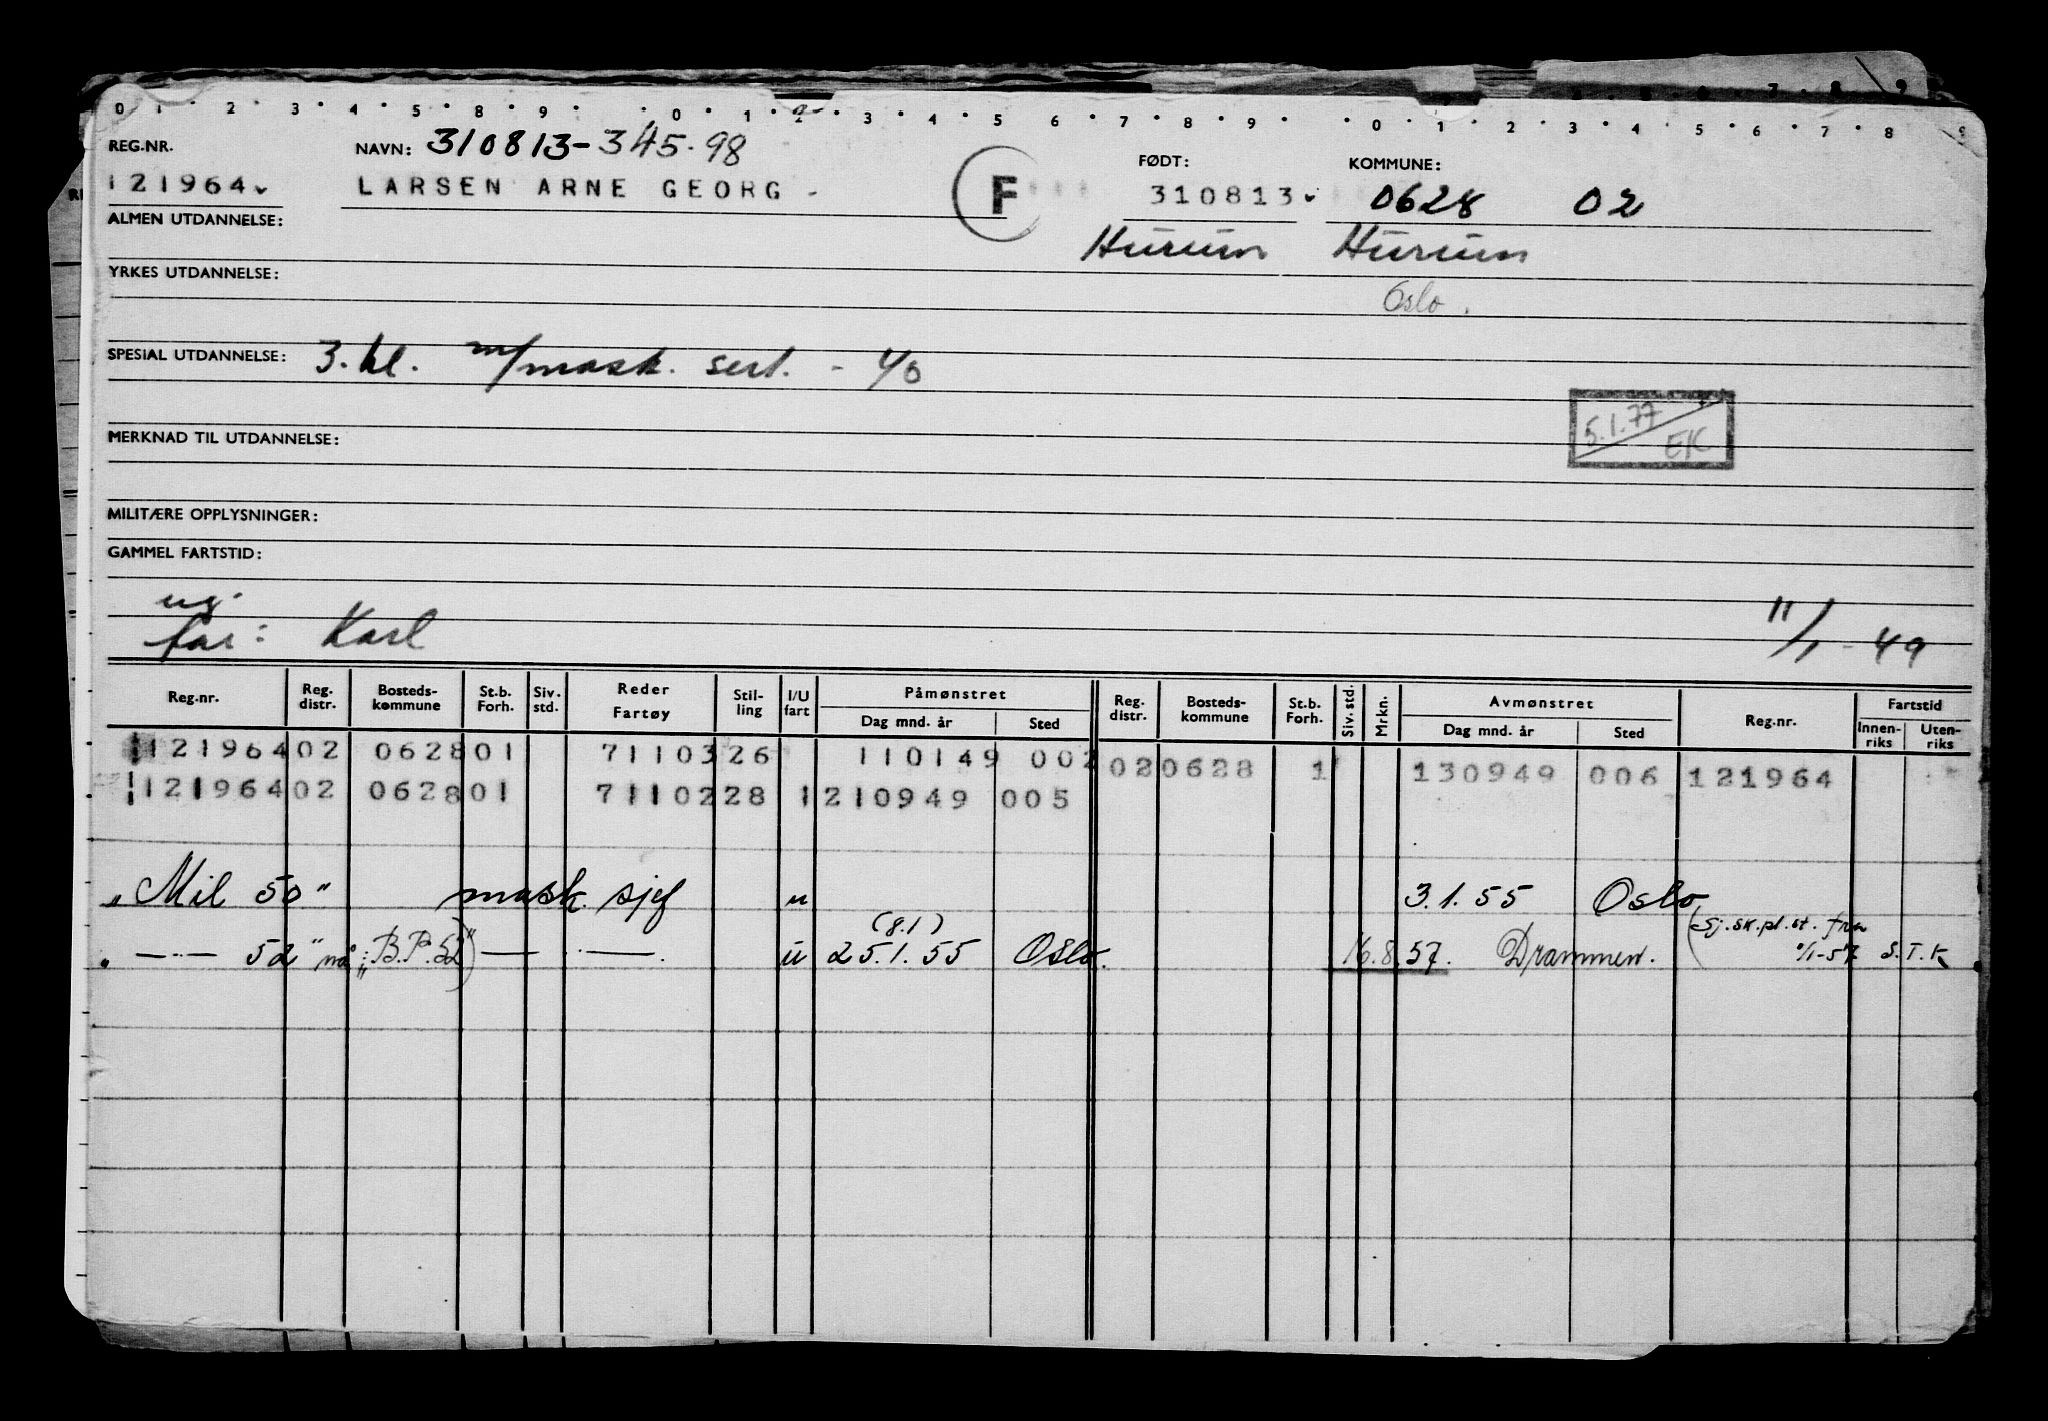 0 1 2 3 4 5 6 8 9 0 1 2 3 4 5 6 7 8 9 0 1 2 3 4 5 6 7 8 9
REG.NR. NAVN: 310813-345.98 FØDT: KOMMUNE:
121964 LARSEN ARNE GEORG - F 310813 0628 02
ALMEN UTDANNELSE: Hurum Hurum
YRKES UTDANNELSE:
Oslo.
SPESIAL UTDANNELSE: 3. kl. m/mask. sert. - 40
5.1.77
EK
MERKNAD TIL UTDANNELSE:
MILITÆRE OPPLYSNINGER:
GAMMEL FARTSTID:
ug.
far: Karl 11/1 - 49
Reg.nr. Reg. distr. Bosteds-kommune St.b. Forh. Siv. std. Reder Fartøy Stil-ling I/U fart Påmønstret Dag mnd. år Sted Reg. distr. Bosteds-kommune St.b. Forh. Siv. std. Mrkn. Avmønstret Dag mnd. år Sted Reg.nr. Fartstid Innen-riks Uten-riks
121964 02 0628 01 7110326 110149 002 02 0628 1 130949 006 121964
121964 02 0628 01 7110228 1 210949 005
"Mil 50" mask. sjef u 3.1.55 Oslo
(8.1) (Sj.sk.pl.st. fra
" —·— 52" nå: "B.P. 52") — · — . u 25.1.55 Oslo. 16.8.57. Drammen. 1/1-57 S.T.K